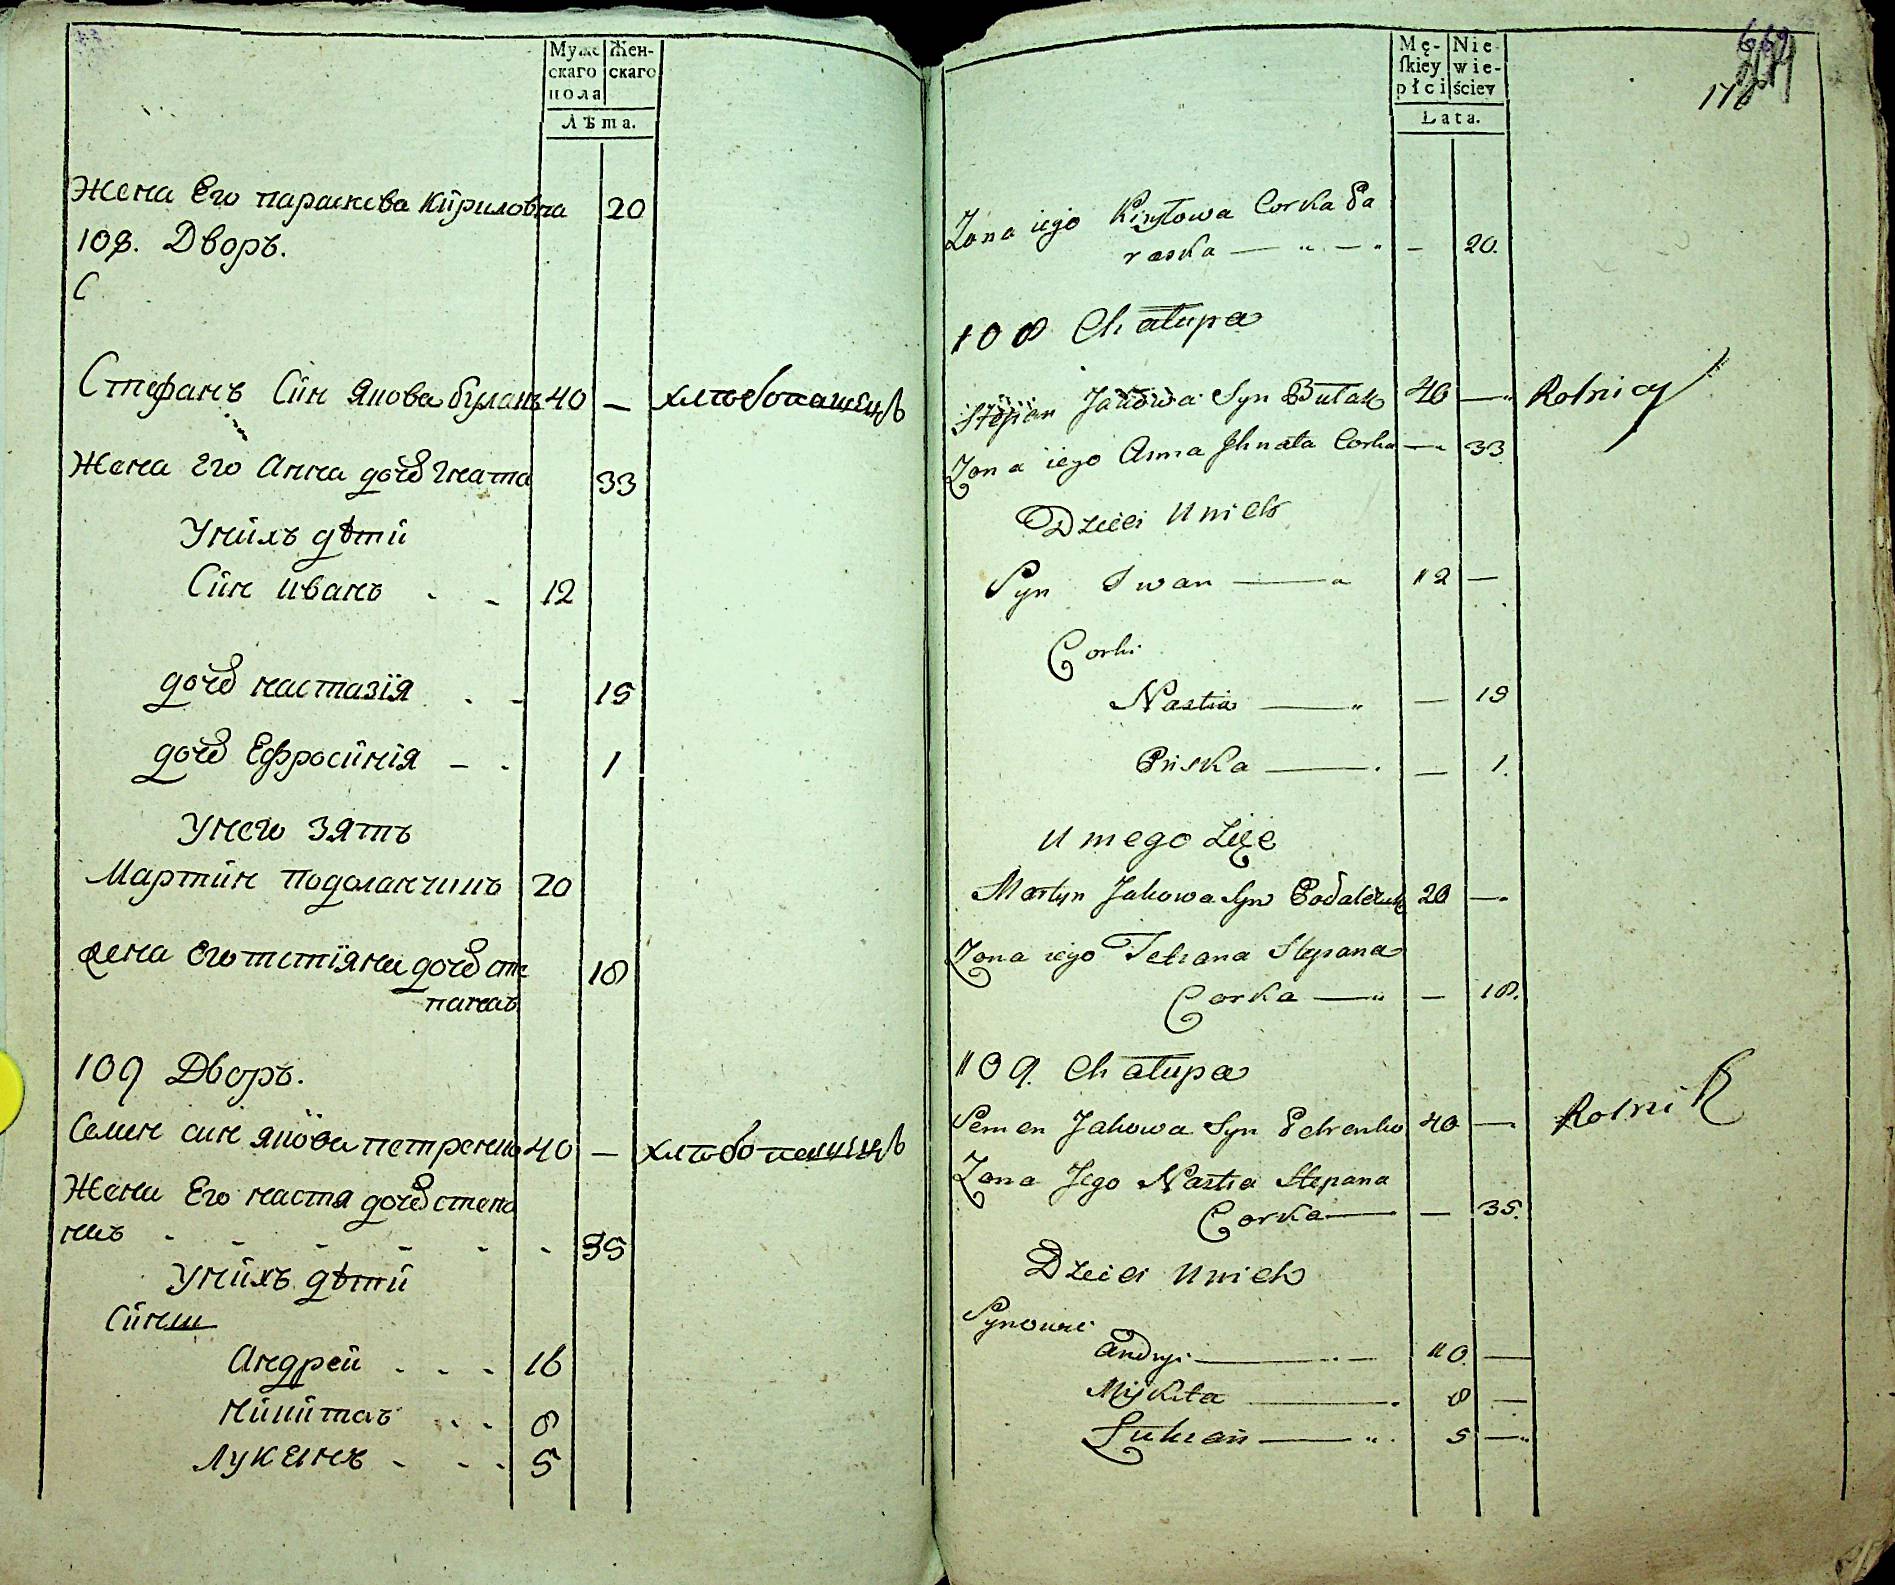 Муже
скаго
пола
Жен-
скаго
Лѣта.
Жена Его параскева Кириловна 20
108. Дворъ.
С
Стефанъ Син Якова булакъ 40 — хлѣбопашецъ
Жена Его Анна дочь Гната 33
Унихъ дѣти
Син иванъ - - 12
дочь настазїя . - 15
дочь Ефросинїя - . 1
Унего Зять
Мартин подоланчикъ 20
жена Его тетїяна дочь сте
панаъ 18
109 Дворъ.
Семен син якова петренко 40 — хлѣбопашецъ
Жена Его настя дочь степа
наъ - - - - - - 35
Унихъ дѣти
Сины
Андрей . - - 16
Никитаъ . . - 8
Лукянъ - - . 5
Mę-
ſkiey
płci
Nie
wie-
ściey
Lata.
669
176
Zona iego Kiryłowa Corka Pa
raska — " — " — 20.
108 Chałupa
Stepan Jakowa Syn Bułak 40 — Rolnicy
Zona iego Anna Jhnata Corka — 33
Dzieci Unich
Syn Iwan — 12 —
Corki
Nastia — " — 15
Priska — . — 1.
U niego Zięć
Martyn Jakowa Syn 20 —
Zona iego Tetiana Stepana
Corka — " — 18.
109. Chałupa
Semen Jakowa Syn Petrenko 40 — Rolnik
Zona Jego Nastia Stepana
Corka — — 35.
Dzieci Unich
Synowie
Andryi — 10. —
Mykita — . 8 —
Lukian — " . 5 — "